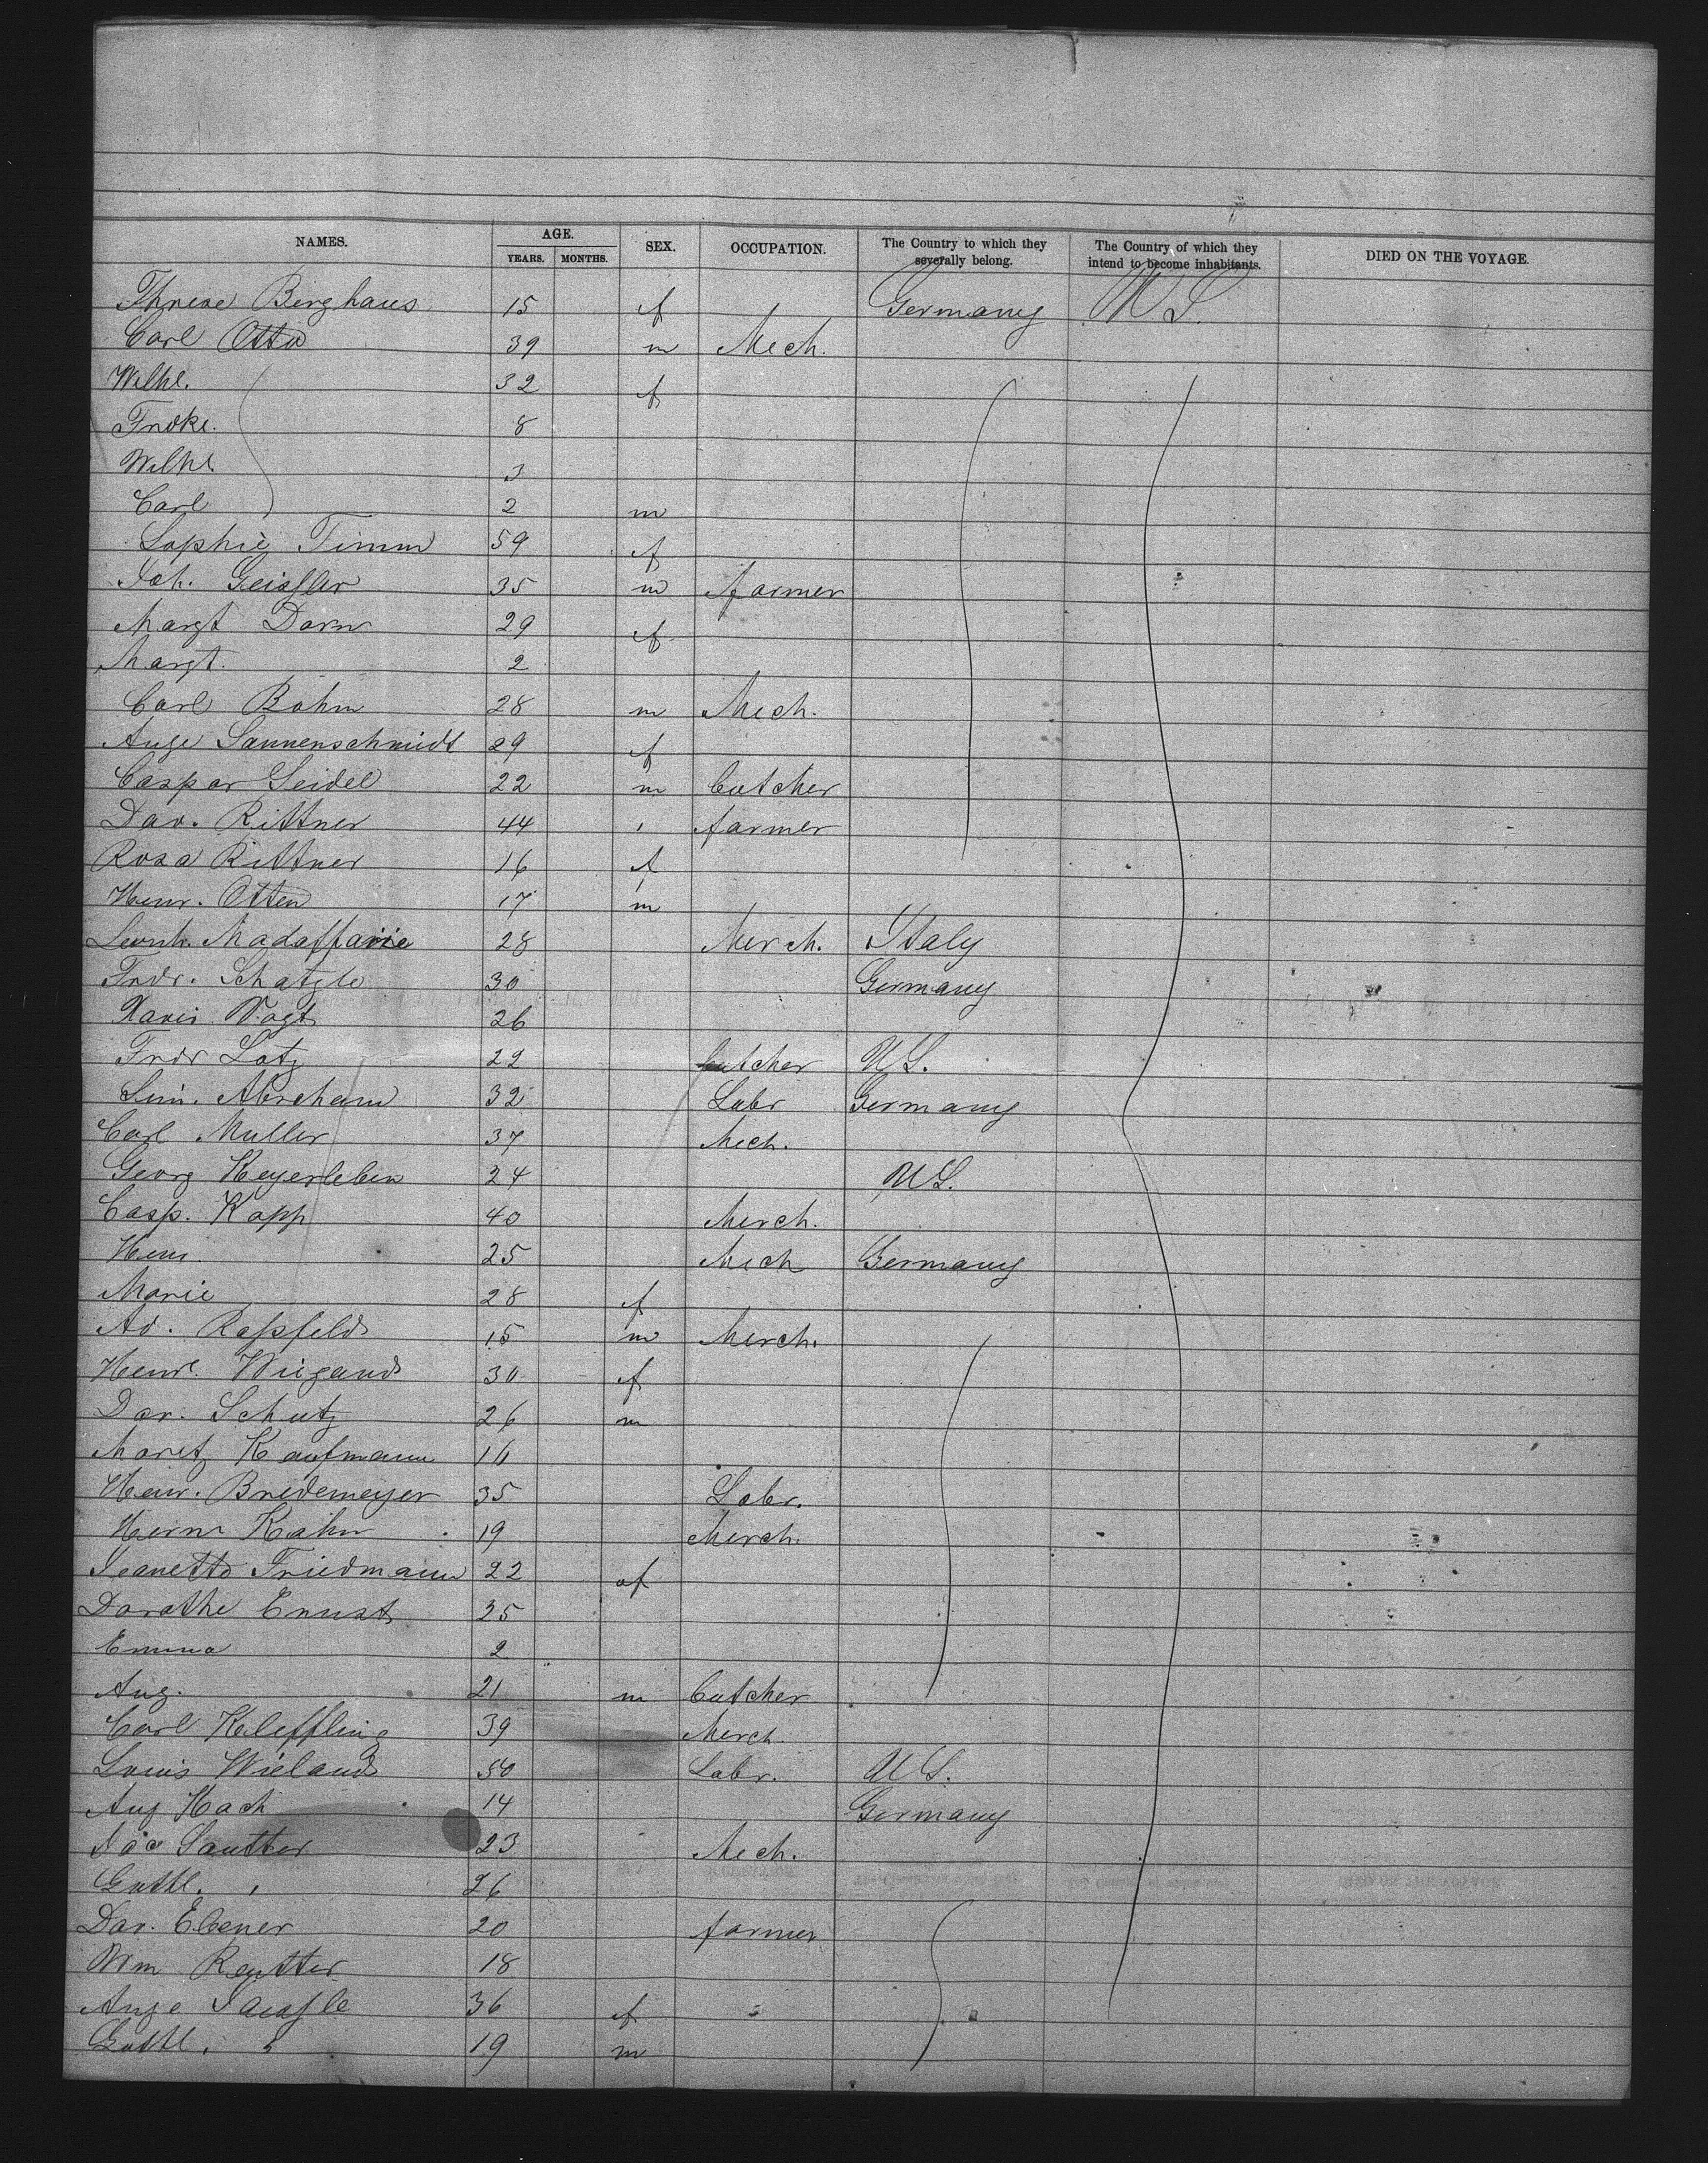 NAMES. AGE. SEX. OCCUPATION. The Country to which they severally belong. The Country of which they intend to become inhabitants. DIED ON THE VOYAGE.
YEARS. MONTHS.
Threse Berghaus 15 f Germany U S.
Carl Otto 39 m Mech.
Wilhl. 32 f
Frdke. 8
Wilhl. 3
Carl 2 m
Sophie Timm 59 f
Joh. Geissler 35 m farmer
Margt Dorn 29 f
Margt. 2
Carl Bohm 28 m Mech.
Auge Sannenschmidt 29 f
Caspar Seidel 22 m butcher
Dav. Rittner 44 " farmer
Rosa Rittner 16 f
Henr. Otten 17 m
Leonh. Madaffarie 28 Merch. Italy
Frdr. Schatzle 30 Germany
Xavir Vogt 26
Frdr Lotz 22 butcher US.
Sim. Abraham 32 Labr Germany
Carl Muller 37 Mech.
Georg Heyerleben 24 US.
Casp. Kopp 40 Merch.
Henr. 25 Mech Germany
Marie 28 f
Ad. Rossfeld 15 m Merch.
Henrl. Wiegand 30 f
Dav. Schutz 26 m
Moritz Kaufmann 16
Henr. Bredemeyer 35 Labr.
Herm Kahn 19 Merch.
Jeanette Friedmann 22 f
Dorathe Ernst 25
Emma 2
Aug. 21 m butcher
Carl Kleffling 39 Merch.
Louis Wieland 50 Labr. US.
Aug Hach 14 Germany
Jac Sautter 23 Mech.
Gottl. " 26
Dav. Ebener 20 farmer
Wm Reutter 18
Auge 36 f
Gottl. " 19 m